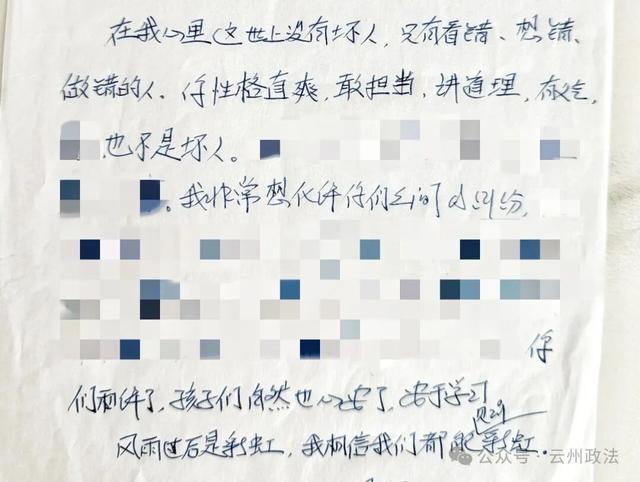 在我心里这世上没有坏人,只有看错、想错、
做错的人、你性格直爽,敢担当,讲道理,有义气,
也不是坏人。
。我非常想化解你们之间的纠纷,
你
们和解了,孩子们自然也心安了,安于学习
风雨过后是彩虹,我相信我们都能见到彩虹.
公众号·云州政法